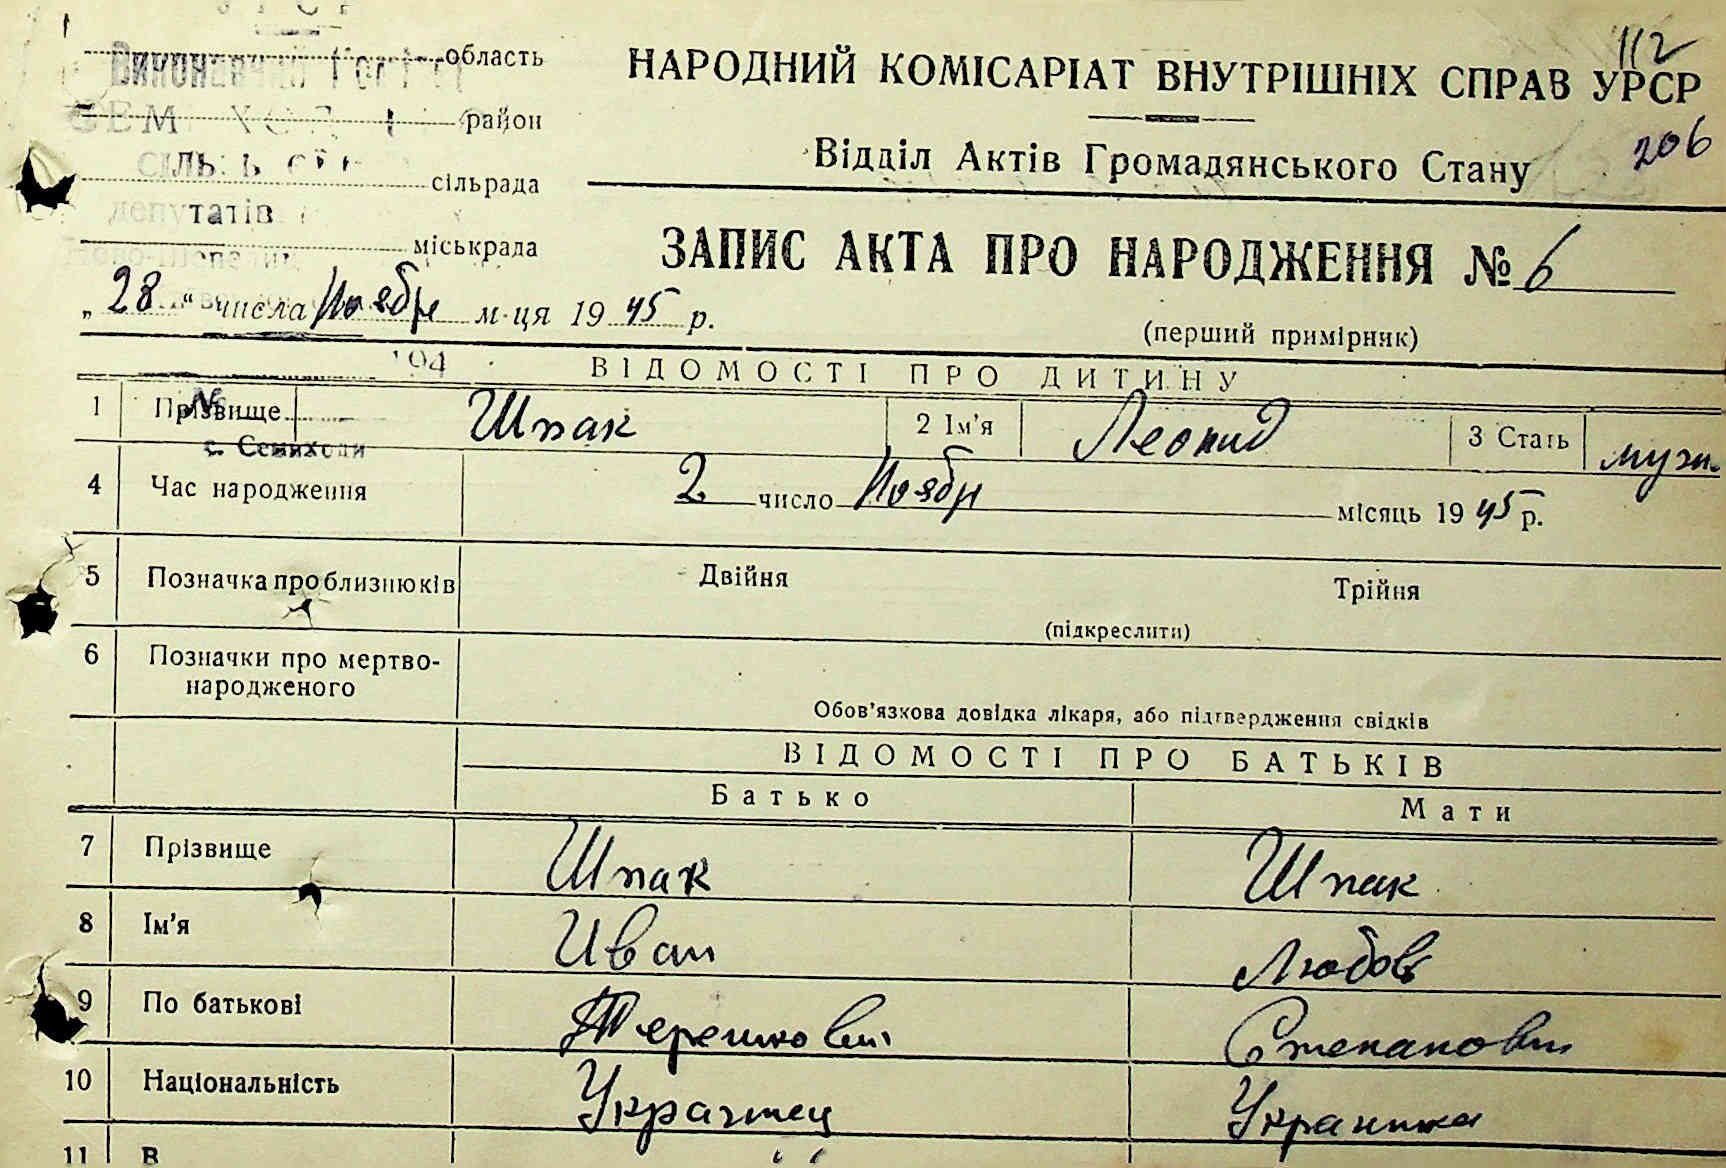 112
область
НАРОДНИЙ КОМІСАРІАТ ВНУТРІШНІХ СПРАВ УРСР
район
Відділ Актів Громадянського Стану
206
сільрада
депутатів
міськрада
ЗАПИС АКТА ПРО НАРОДЖЕННЯ № 6
„28“ числа Ноября м-ця 1945 р.
(перший примірник)
194
ВІДОМОСТІ ПРО ДИТИНУ
№
1 Прізвище Шпак 2 Ім'я Леонид 3 Стать муж.
с. Семиходи
4 Час народження 2 число Ноября місяць 1945 р.
5 Позначка про близнюків Двійня Трійня
(підкреслити)
6 Позначки про мертво-
народженого
Обов'язкова довідка лікаря, або підтвердження свідків
ВІДОМОСТІ ПРО БАТЬКІВ
Батько Мати
7 Прізвище Шпак Шпак
8 Ім'я Иван Любовь
9 По батькові
10 Національність
11 В